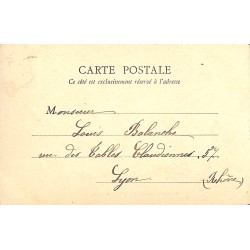 CARTE POSTALE
Ce côté est exclusivement réservé à l'adresse
Monsieur
Louis Balanche
rue des Tables Claudiennes. 57
Lyon
(Rhône)